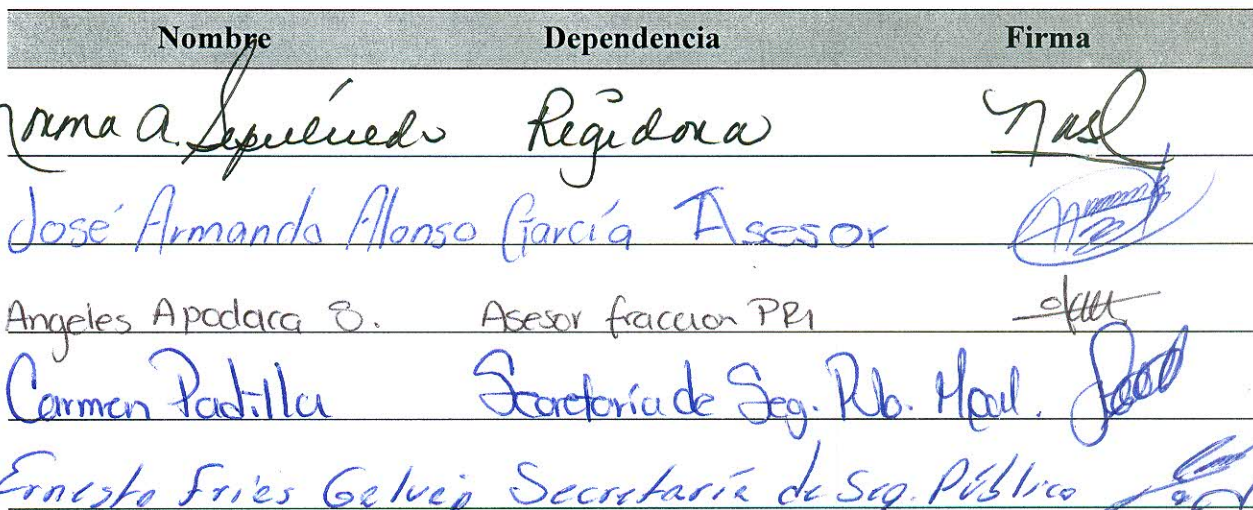 Nombre Dependencia Firma
Norma A. Sepúlveda Regidora Nasl
José Armando Alonso García Asesor
Angeles Apodaca S. Asesor fraccion PRI
Carmen Padilla Secretaría de Seg. Pub. Mpal.
Ernesto Fries Galvez Secretaría de Seg. Pública